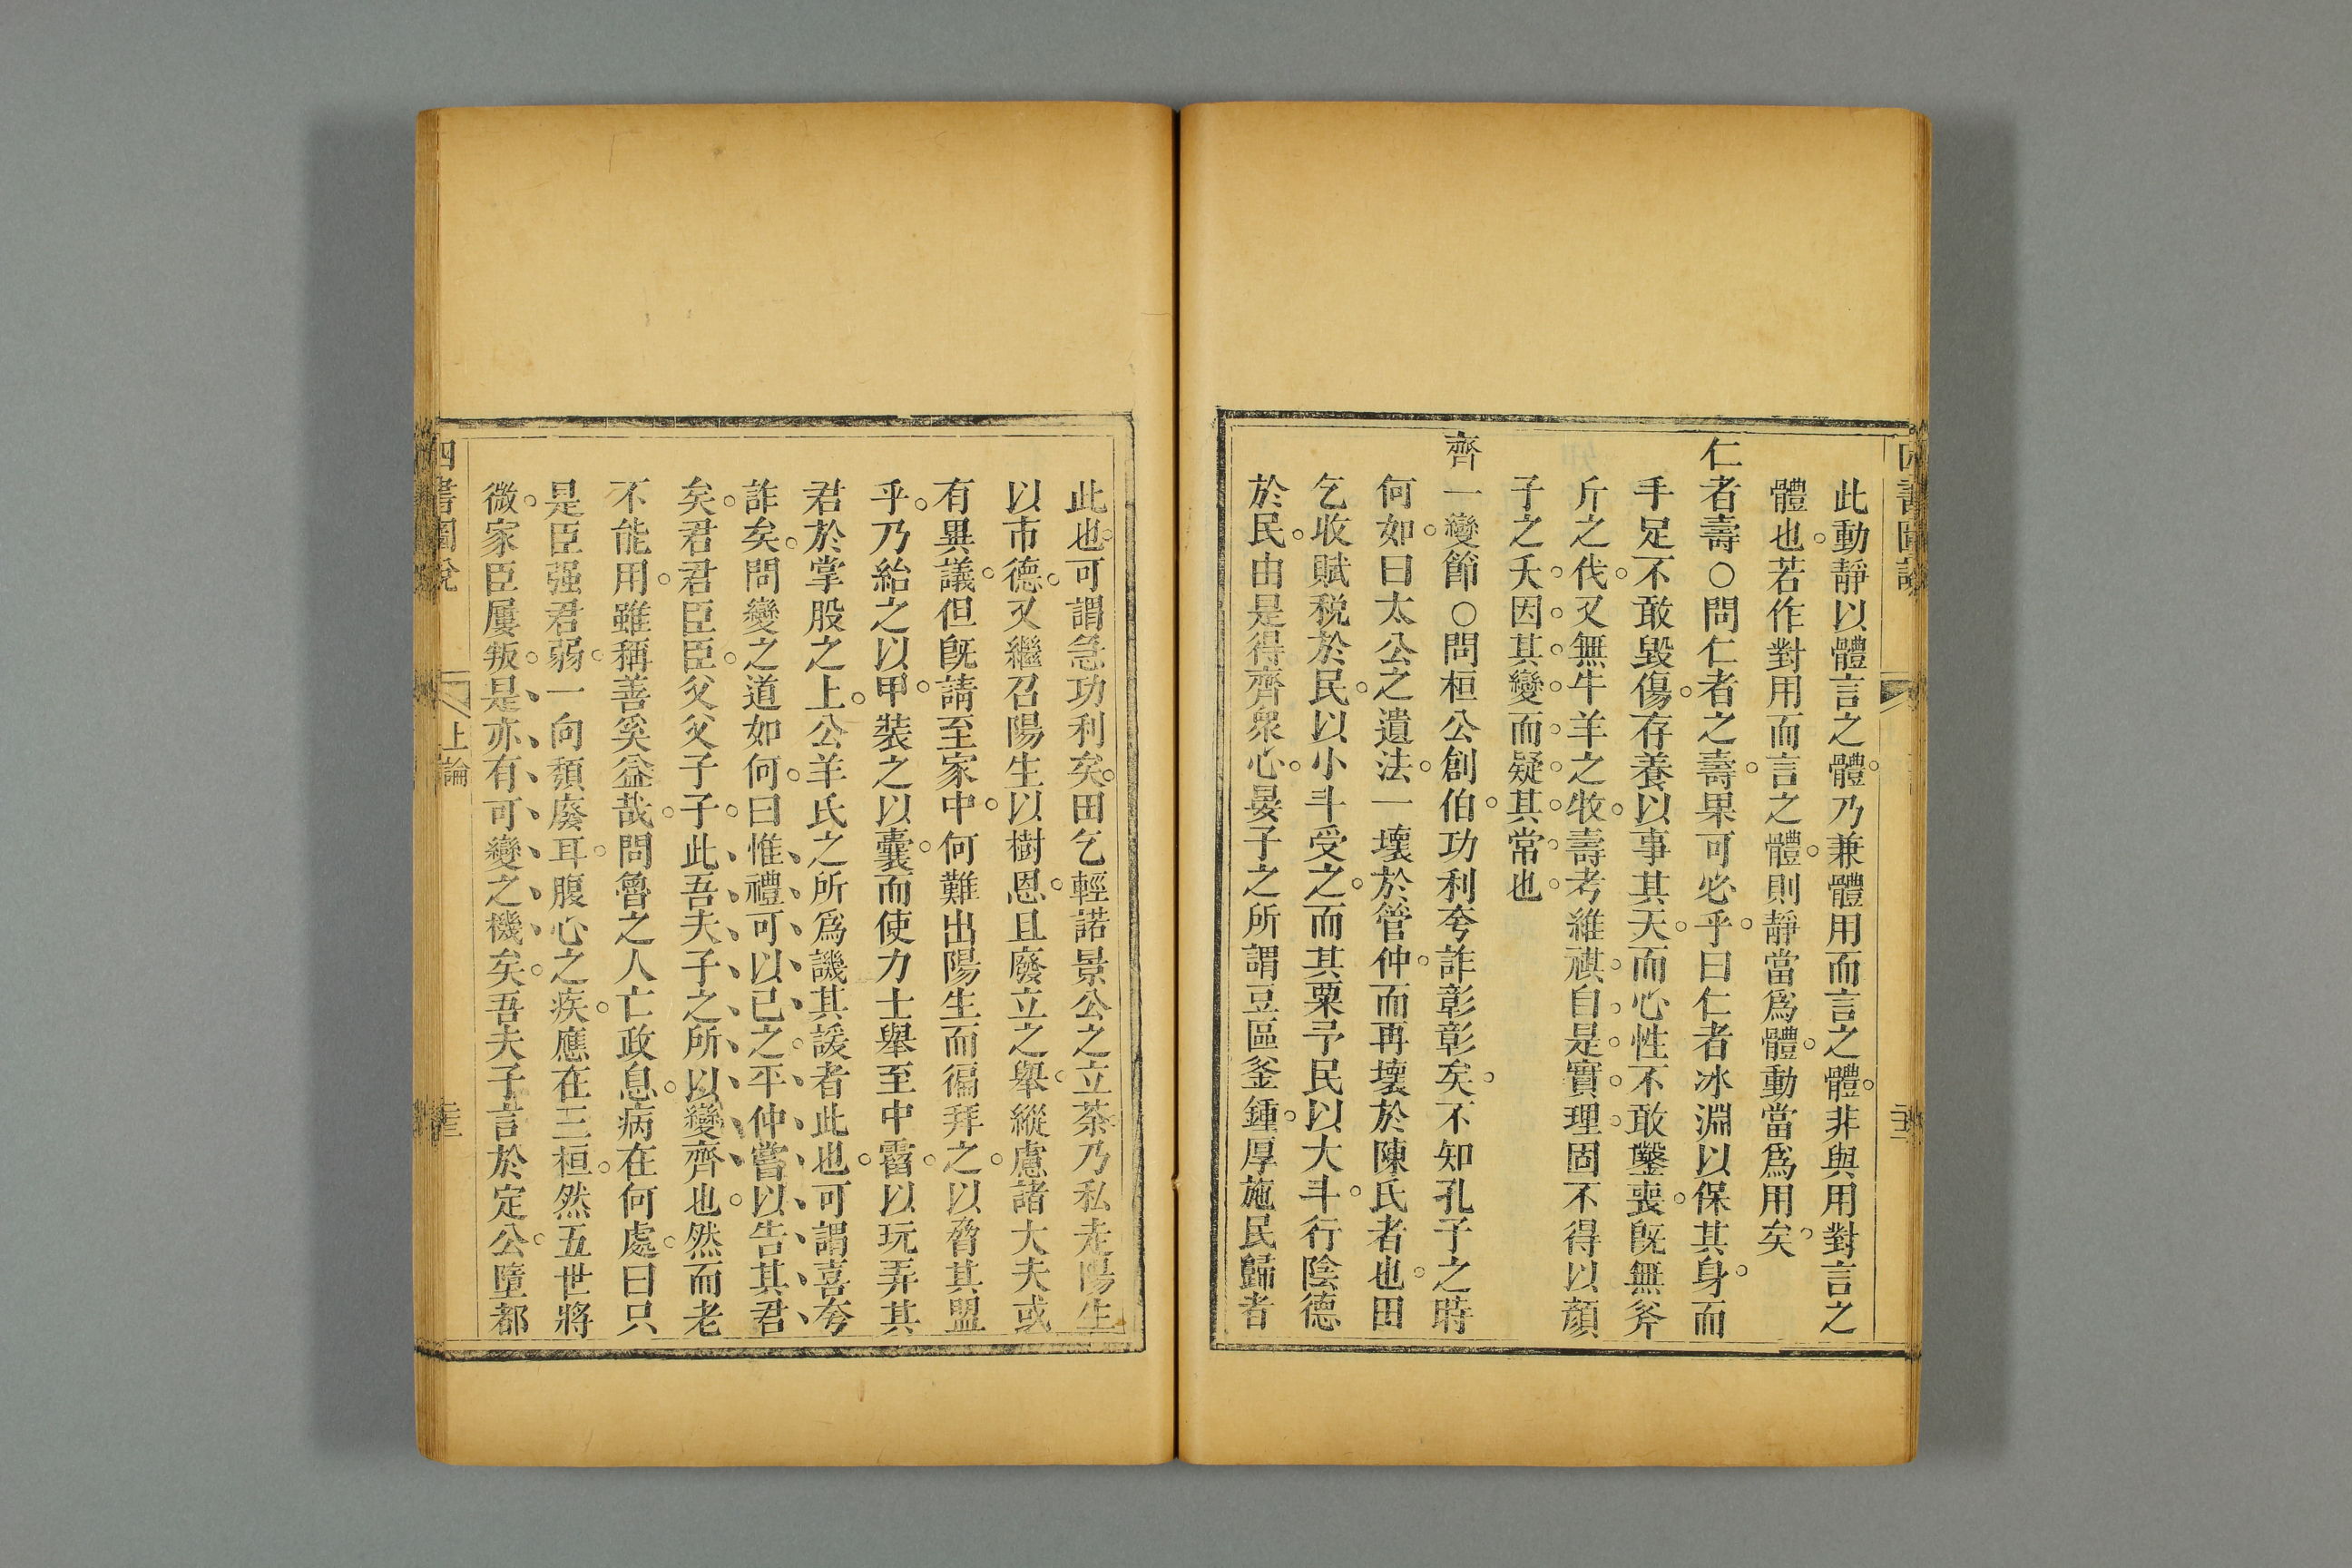 此動靜以體言之體乃兼體用而言之體非與用對言之
體也若作對用而言之體則靜當爲體動當爲用矣
仁者壽○問仁者之壽果可必乎曰仁者冰淵以保其身而
手足不敢毀傷存養以事其天而心性不敢鑿喪旣無斧
斤之伐又無牛羊之牧壽考維祺自是實理固不得以顏
子之夭因其變而疑其常也
齊一變節○問桓公創伯功利夸詐彰彰矣不知孔子之時
何如曰太公之遺法一壞於管仲而再壞於陳氏者也田
乞收賦稅於民以小斗受之而其粟予民以大斗行陰德
於民由是得齊衆心晏子之所謂豆區釜鍾厚施民歸者
此也可謂急功利矣田乞輕諾景公之立荼乃私走陽生
以市德又繼召陽生以樹恩且廢立之舉縱慮諸大夫或
有異議但旣請至家中何難出陽生而徧拜之以脅其盟
乎乃紿之以甲裝之以囊而使力士舉至中霤以玩弄其
君於掌股之上公羊氏之所爲譏其諼者此也可謂喜夸
詐矣問變之道如何曰惟禮可以已之平仲嘗以告其君
矣君君臣臣父父子子此吾夫子之所以變齊也然而老
不能用雖稱善奚益哉問魯之人亡政息病在何處曰只
是臣强君弱一向頹廢耳腹心之疾應在三桓然五世將
微家臣屢叛是亦有可變之機矣吾夫子言於定公墮都
四書圖說
上論